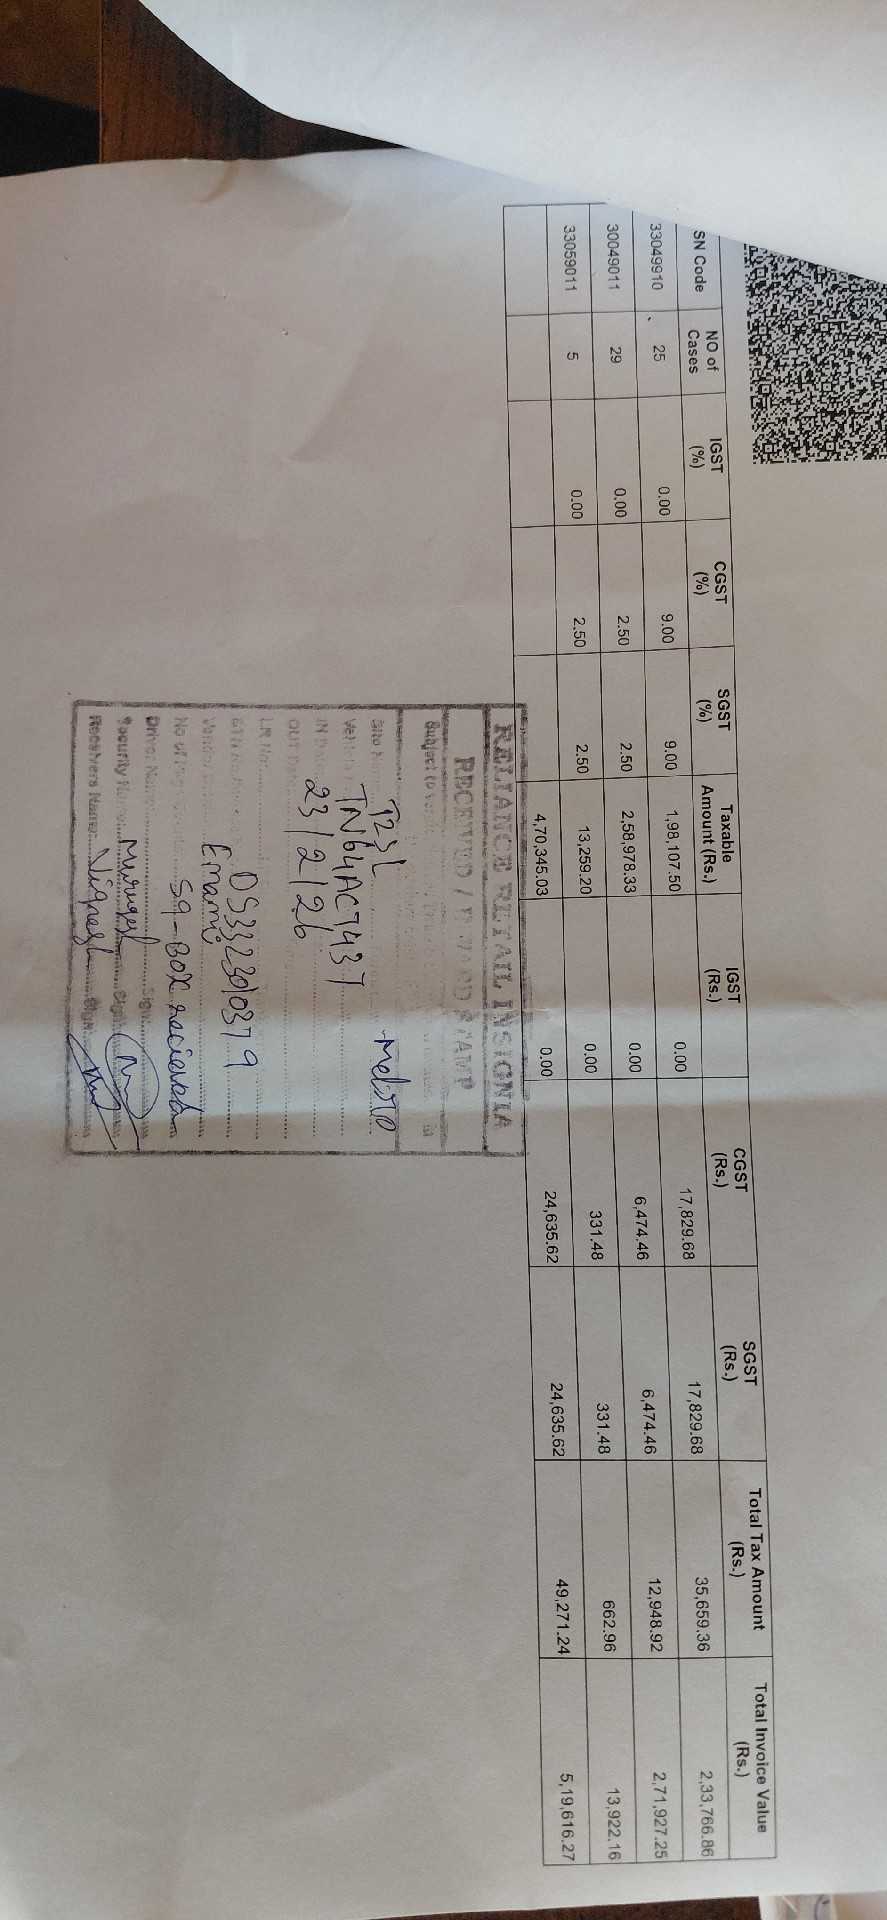 SN Code NO of Cases IGST (%) CGST (%) SGST (%) Taxable Amount (Rs.) IGST (Rs.) CGST (Rs.) SGST (Rs.) Total Tax Amount (Rs.) Total Invoice Value (Rs.)
33049910 25 0.00 9.00 9.00 1,98,107.50 0.00 17,829.68 17,829.68 35,659.36 2,33,766.86
30049011 29 0.00 2.50 2.50 2,58,978.33 0.00 6,474.46 6,474.46 12,948.92 2,71,927.25
33059011 5 0.00 2.50 2.50 13,259.20 0.00 331.48 331.48 662.96 13,922.16
4,70,345.03 0.00 24,635.62 24,635.62 49,271.24 5,19,616.27
RELIANCE RETAIL INSIGNIA
RECEIVED / STAMP
Subject to
T23L Metro
TN64AC7437
IN 23/2/26
OUT
LR No
OS3323010379
Vendor Emami
No of 59-Box recieved
Driver Name Sign
Security Name Murugesh Sign
Receivers Name Vignesh Sign